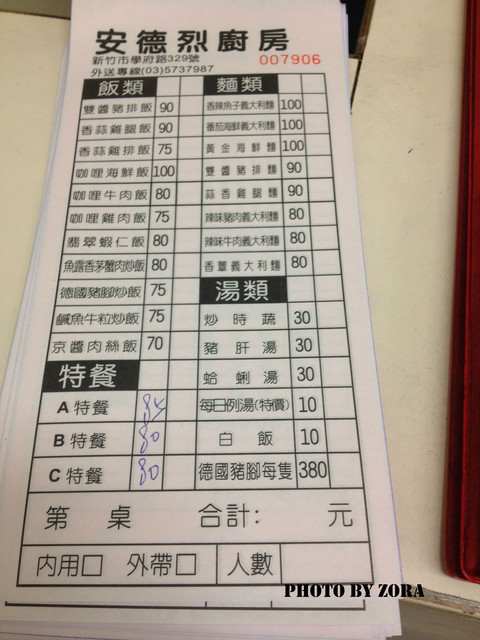 安德烈廚房
新竹市學府路329號 007906
外送專線(03)5737987
飯類
雙醬豬排飯 90
香蒜雞腿飯 90
香蒜雞排飯 75
咖哩海鮮飯 100
咖哩牛肉飯 80
咖哩雞肉飯 75
翡翠蝦仁飯 80
魚露香茅蟹肉炒飯 80
德國豬腳炒飯 75
鹹魚牛粒炒飯 75
京醬肉絲飯 70
特餐
A特餐 85
B特餐 80
C特餐 80
麵類
香辣魚子義大利麵 100
番茄海鮮義大利麵 100
黃金海鮮麵 100
雙醬豬排麵 90
蒜香雞腿麵 90
辣味豬肉義大利麵 80
辣味牛肉義大利麵 80
香蕈義大利麵 80
湯類
炒時蔬 30
豬肝湯 30
蛤蜊湯 30
每日例湯(特價) 10
白飯 10
德國豬腳每隻 380
第 桌 合計: 元
內用□ 外帶□ 人數
PHOTO BY ZORA